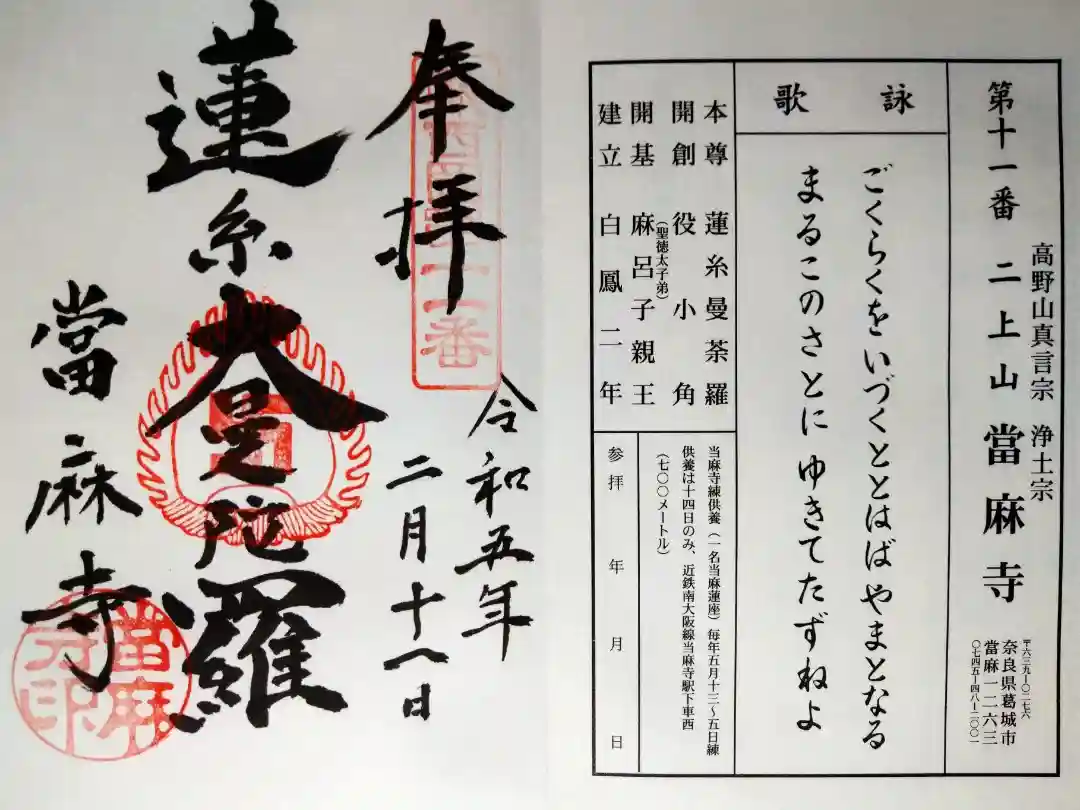 第十一番 二上山 當麻寺
高野山真言宗 浄土宗
〒六三九ー〇二七六
奈良県葛城市
當麻一二六三
〇七四五ー四八ー二〇〇一
詠歌
ごくらくをいづくととはば やまとなる
まるこのさとに ゆきてたずねよ
本尊 蓮糸曼荼羅
開創 役小角
開基 麻呂子親王
(聖徳太子弟)
建立 白鳳二年
当麻寺練供養(一名当麻蓮座)毎年五月十三〜五日練
供養は十四日のみ、近鉄南大阪線当麻寺駅下車西
(七〇〇メートル)
参拝 年 月 日
奉拝
令和五年
二月十八日
蓮糸大曼陀羅
當麻寺
當麻
寺印